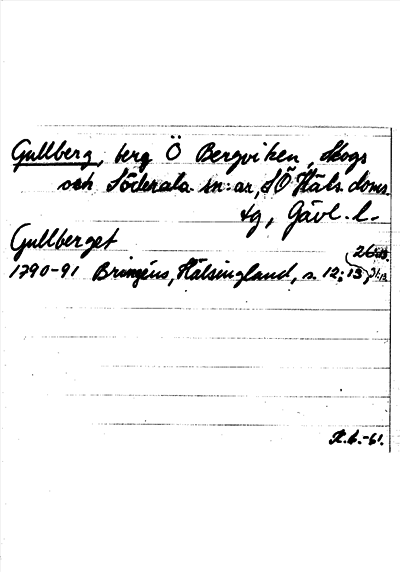 Gullberg, berg Ö Bergviken, Skogs
och Söderala sn:ar, SÖ Häls. doms.
tg, Gävl. l.
Gullberget
1790-91 Bringéus, Hälsingland, s. 12; 13,
K.H.-61.